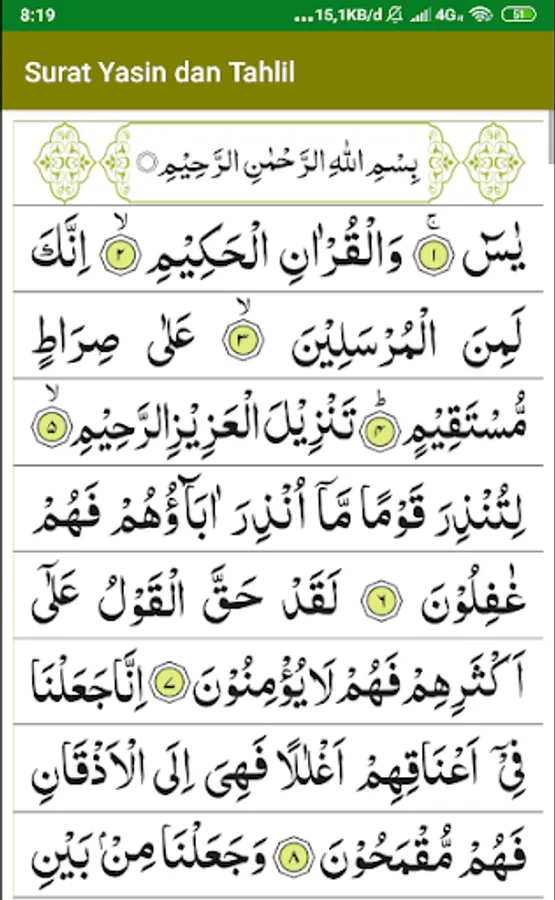 8:19 ...15,1KB/d 4G 51
Surat Yasin dan Tahlil
بِسْمِ اللّٰهِ الرَّحْمٰنِ الرَّحِيْمِ
يٰسۤ ۚ ﴿١﴾ وَالْقُرْاٰنِ الْحَكِيْمِ ۙ ﴿٢﴾ اِنَّكَ
لَمِنَ الْمُرْسَلِيْنَ ۙ ﴿٣﴾ عَلٰى صِرَاطٍ
مُّسْتَقِيْمٍ ۗ ﴿٤﴾ تَنْزِيْلَ الْعَزِيْزِ الرَّحِيْمِ ۙ ﴿٥﴾
لِتُنْذِرَ قَوْمًا مَّاۤ اُنْذِرَ اٰبَاۤؤُهُمْ فَهُمْ
غٰفِلُوْنَ ﴿٦﴾ لَقَدْ حَقَّ الْقَوْلُ عَلٰۤى
اَكْثَرِهِمْ فَهُمْ لَا يُؤْمِنُوْنَ ﴿٧﴾ اِنَّا جَعَلْنَا
فِيْۤ اَعْنَاقِهِمْ اَغْلٰلًا فَهِيَ اِلَى الْاَذْقَانِ
فَهُمْ مُّقْمَحُوْنَ ﴿٨﴾ وَجَعَلْنَا مِنْۢ بَيْنِ